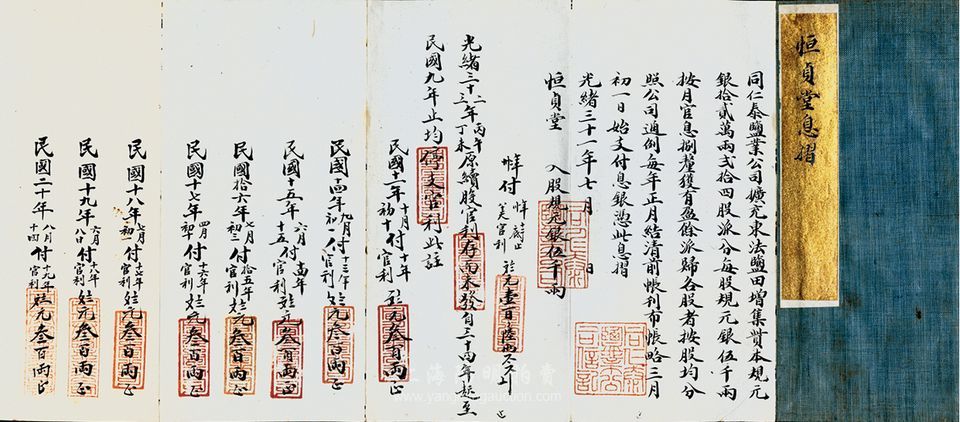 恒貞堂息摺
同仁泰鹽業公司擴充東法鹽田增集貲本規元
銀拾貳萬兩弍拾四股派分每股規元銀伍千兩
按月官息捌釐獲有盈餘派歸各股者按股均分
照公司通例每年正月結清前帳刊布帳略三月
初一日始支付息銀憑此息摺
光緒三十一年七月 日
恒貞堂 入股規元銀伍千兩
付 官利 元壹百陸
光緒三十二年丙午
三十三年丁未原續股官利存而未發自三十四年起至
民國九年止均停支官利此註
民國十一年十月初十付十年官利 元叁百兩正
民國十四年九月初一付十三年官利 元叁百兩正
民國十五年六月十五付 官利 元叁百兩正
民國拾六年七月初三付拾五年官利 元叁百兩正
民國十七年四月 付十六年官利 元叁百兩正
民國十八年七月初一付十七年官利 元叁百兩正
民國十九年六月八日付十八年官利 元叁百兩正
民國二十年八月十四付十九年官利 元叁百兩正
www.yangmingauction.com